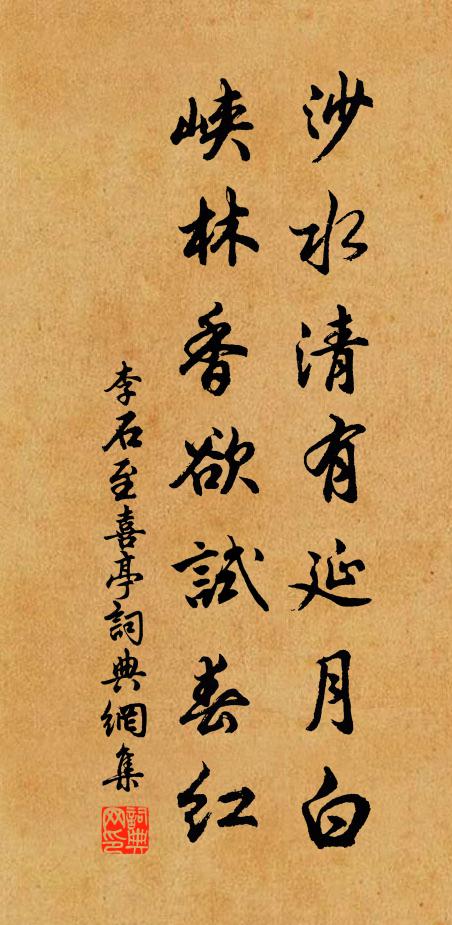 沙水清有延月白
峡林香欲試春紅
李石至喜亭詞典網集
詞典网印